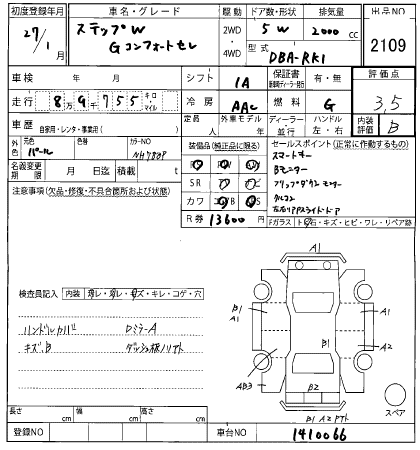 初度登録年月
27/1月
車名・グレード
ステップW
Gコンフォートセレ
駆動
2WD
4WD
ドア数・形状
5W
排気量
2000 cc
型式
DBA-RK1
出品NO
2109
車検 年 月
シフト
IA
保証書
有・無
評価点
3,5
走行
8万9千755 キロ・マイル
冷房
AAC
燃料
G
車歴 自家用・レンタ・事業用( )
定員 人
外車モデル
ディーラー
並行
ハンドル
左・右
内装評価
B
外色
元色
パール
色替
カラーNO
NH788P
装備品(純正品に限る)
セールスポイント(正常に作動するもの)
スマートキー
Bモニター
フリップダウンモニター
クルコン
左右リアPスライドドア
名義変更期限
月 日
積載 t
SR
カワ
注意事項(欠品・修復・不具合箇所および状態)
R券
13600円
Fガラス
トビ石・キズ・ヒビ・ワレ・リペア跡
検査員記入
内装
汚レ・破レ・キズ・キレ・コゲ・穴
ハンドルカバー
DミラーA
キズ、B
ダッシュ板ノリアト
A1
B1
A1
A1
B1
A2
AB3
B2
B1 A2
スペア
長さ cm
幅 cm
高さ cm
登録NO
車台NO
1410066